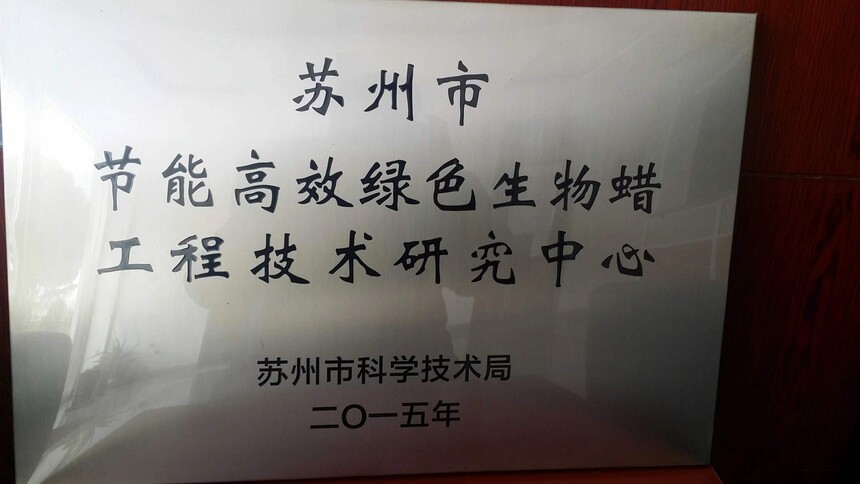 苏州市
节能高效绿色生物蜡
工程技术研究中心
苏州市科学技术局
二〇一五年